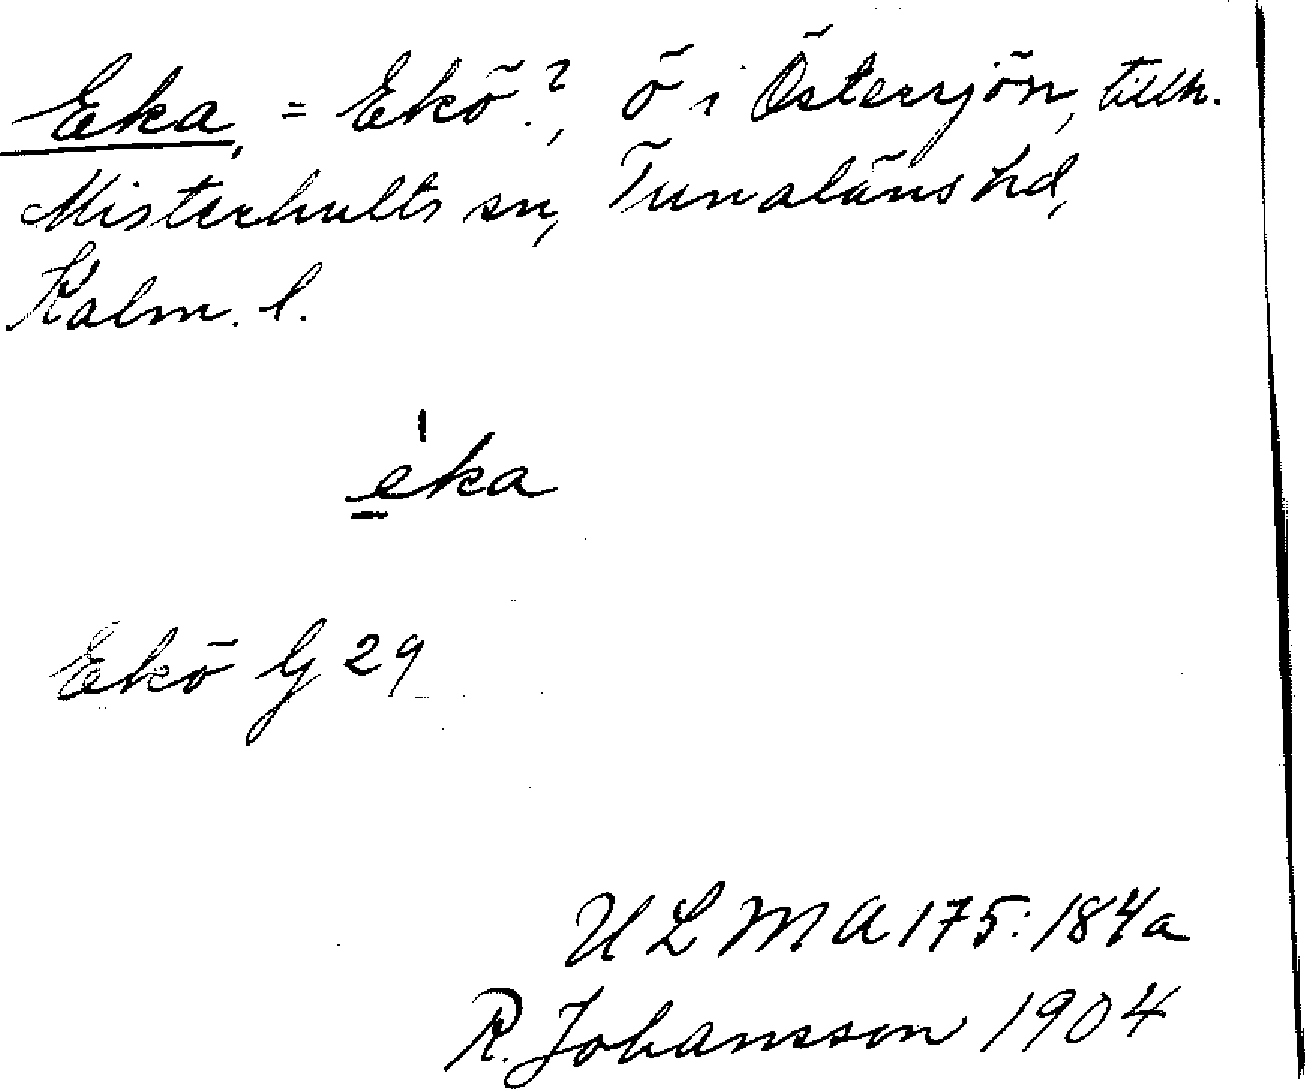 Eka, = Ekö?, ö i Östersjön, tillh.
Misterhults sn, Tunaläns hd,
Kalm. l.
e̲̍ka
Ekö G 29
ULMA 175:184a
R. Johansson 1904